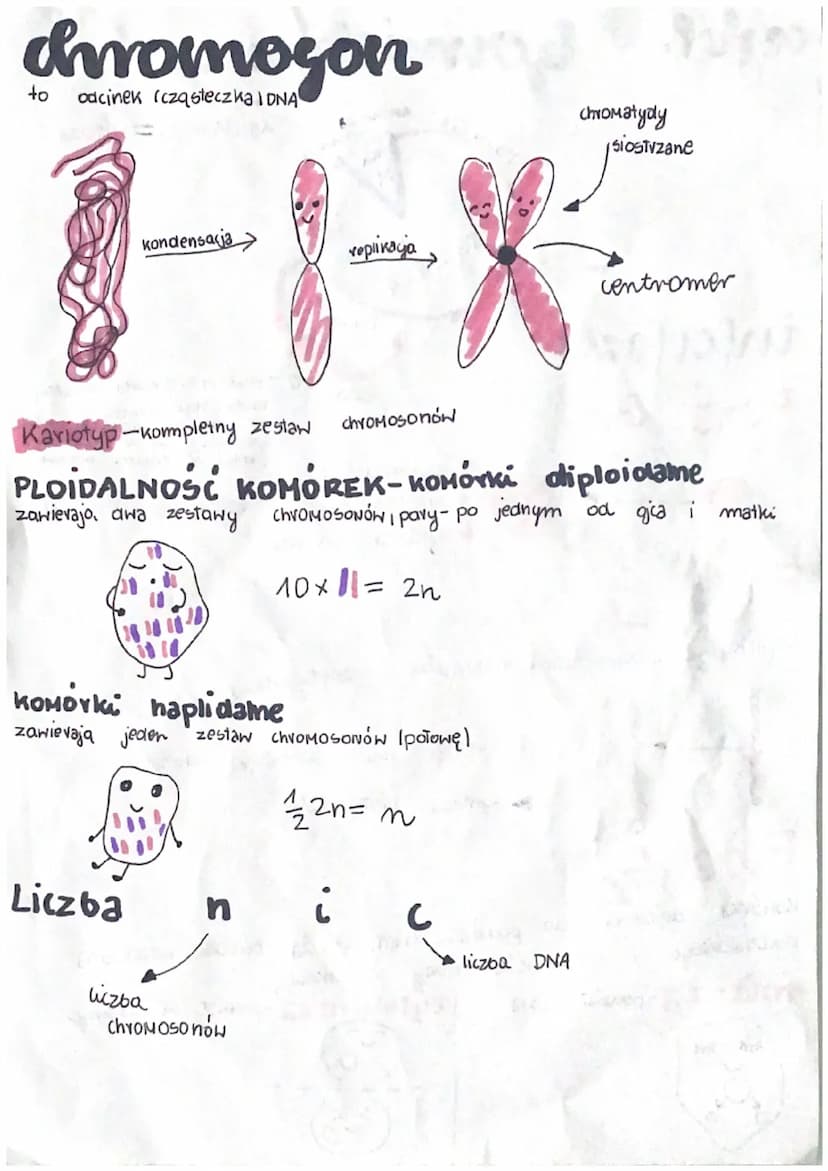 chromogon
to odcinek (cząsteczka) DNA
chromatydy
siostrzane
kondensacja
replikacja
centromer
Kariotyp - kompletny zestaw chromosonów
PLOIDALNOŚĆ KOMÓREK - komórki diploidalne
zawierają dwa zestawy chromosonów, pary - po jednym od ojca i matki
10 x || = 2n
komórki haplidalne
zawierają jeden zestaw chromosonów (połowę)
1/2 2n = n
Liczba n i c
liczba DNA
liczba
chromosonów